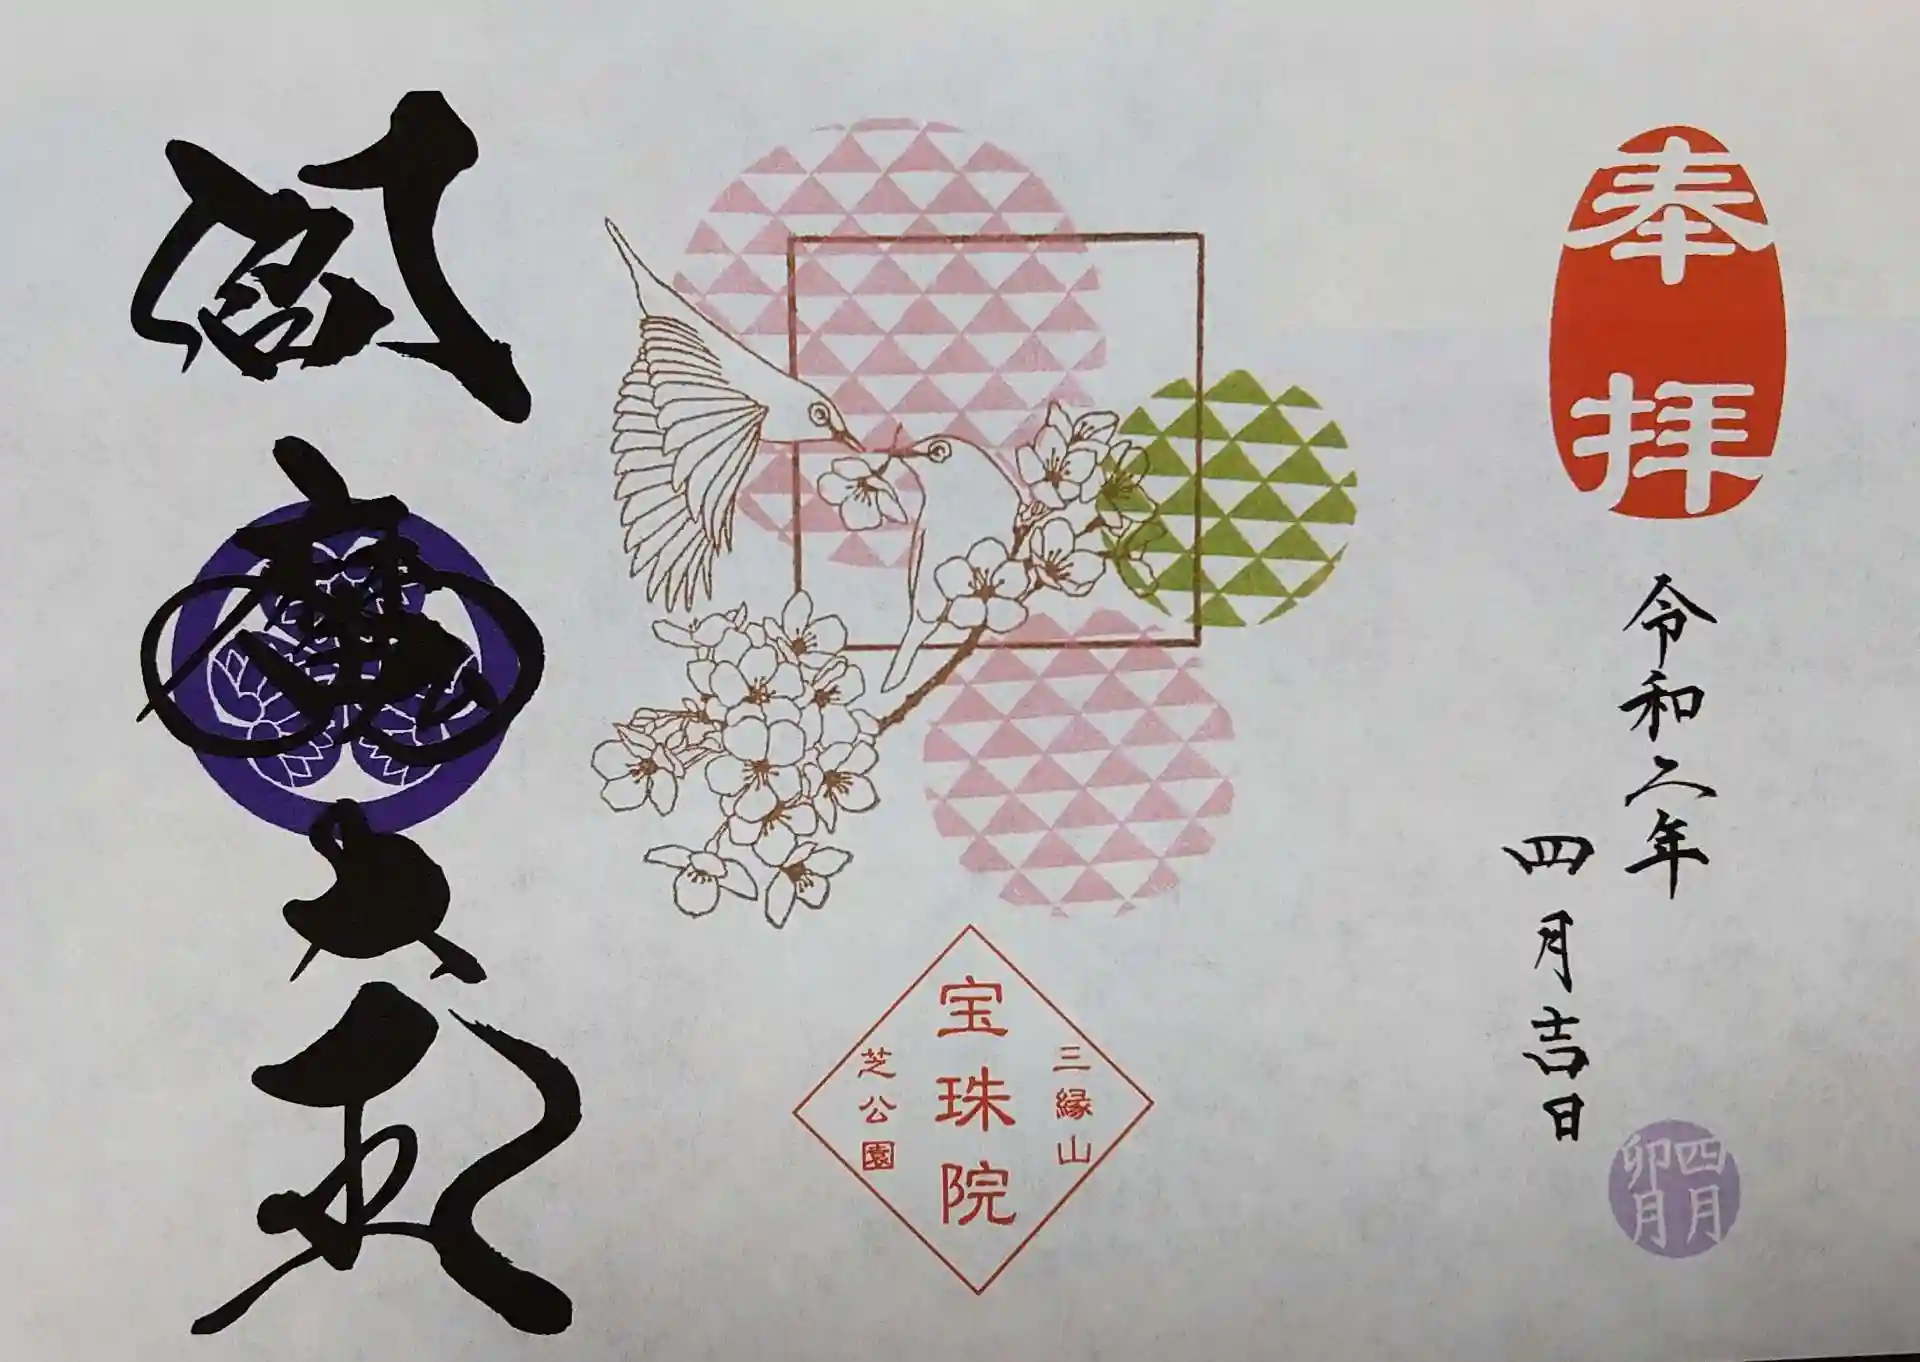 奉拝
令和二年
四月吉日
四月
卯月
三縁山
宝珠院
芝公園
閻魔大王